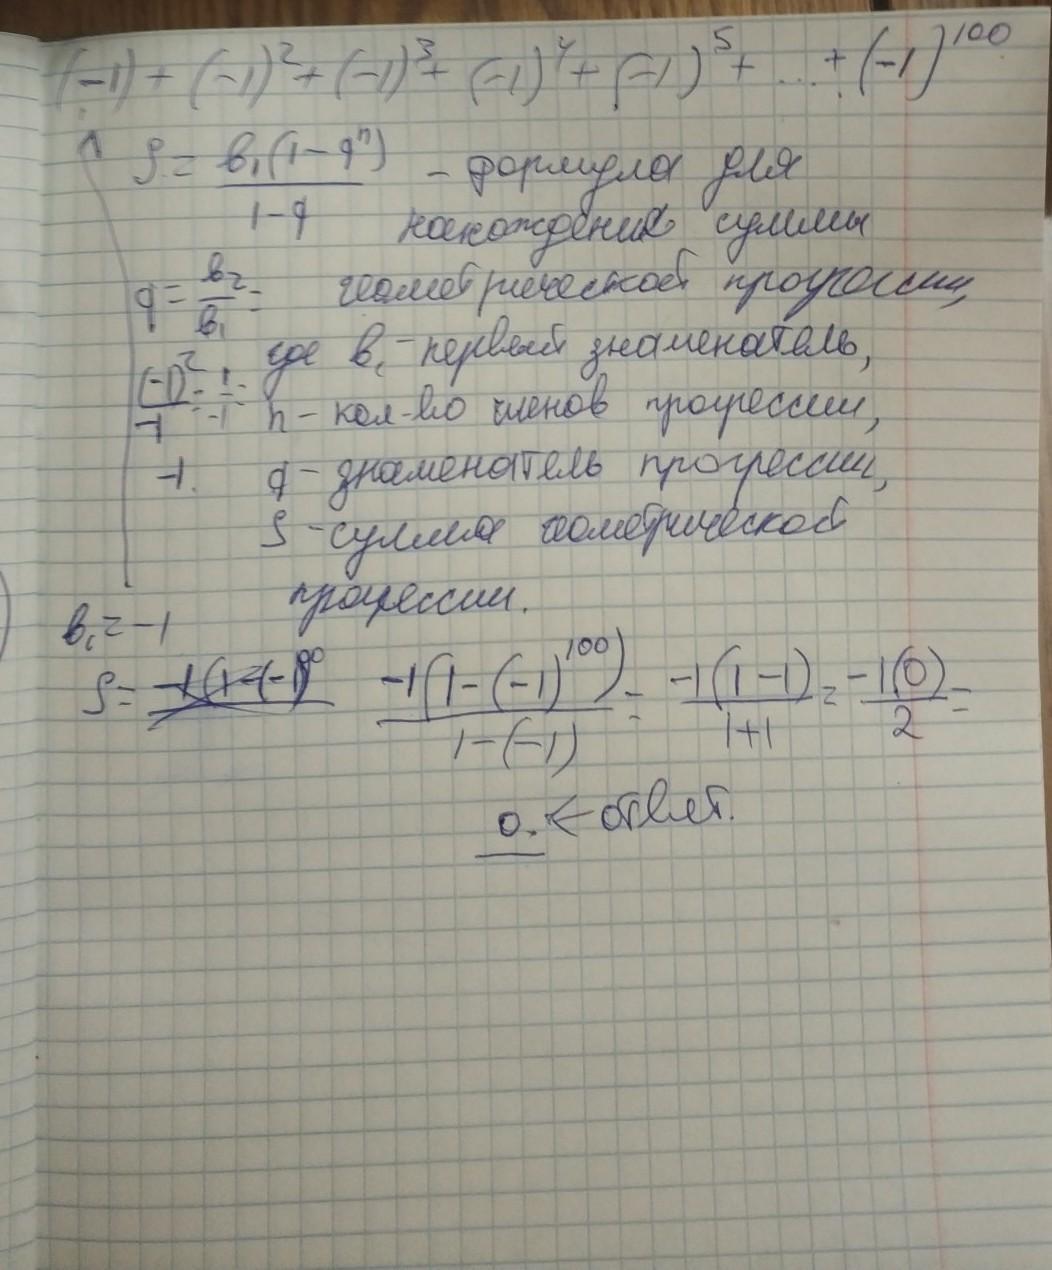 (-1) + (-1)² + (-1)³ + (-1)⁴ + (-1)⁵ + ... + (-1)¹⁰⁰
S = b₁(1-qⁿ) / 1-q - формула для
нахождения суммы
q = b₂/b₁ = геометрической прогрессии,
(-1)²/-1 = 1/-1 = где b₁ - первый знаменатель,
n - кол-во членов прогрессии,
-1. q - знаменатель прогрессии,
S - сумма геометрической
прогрессии.
b₁ = -1
S = -1(1-(-1)¹⁰⁰) / 1-(-1) = -1(1-1) / 1+1 = -1(0) / 2 =
0. ← ответ.